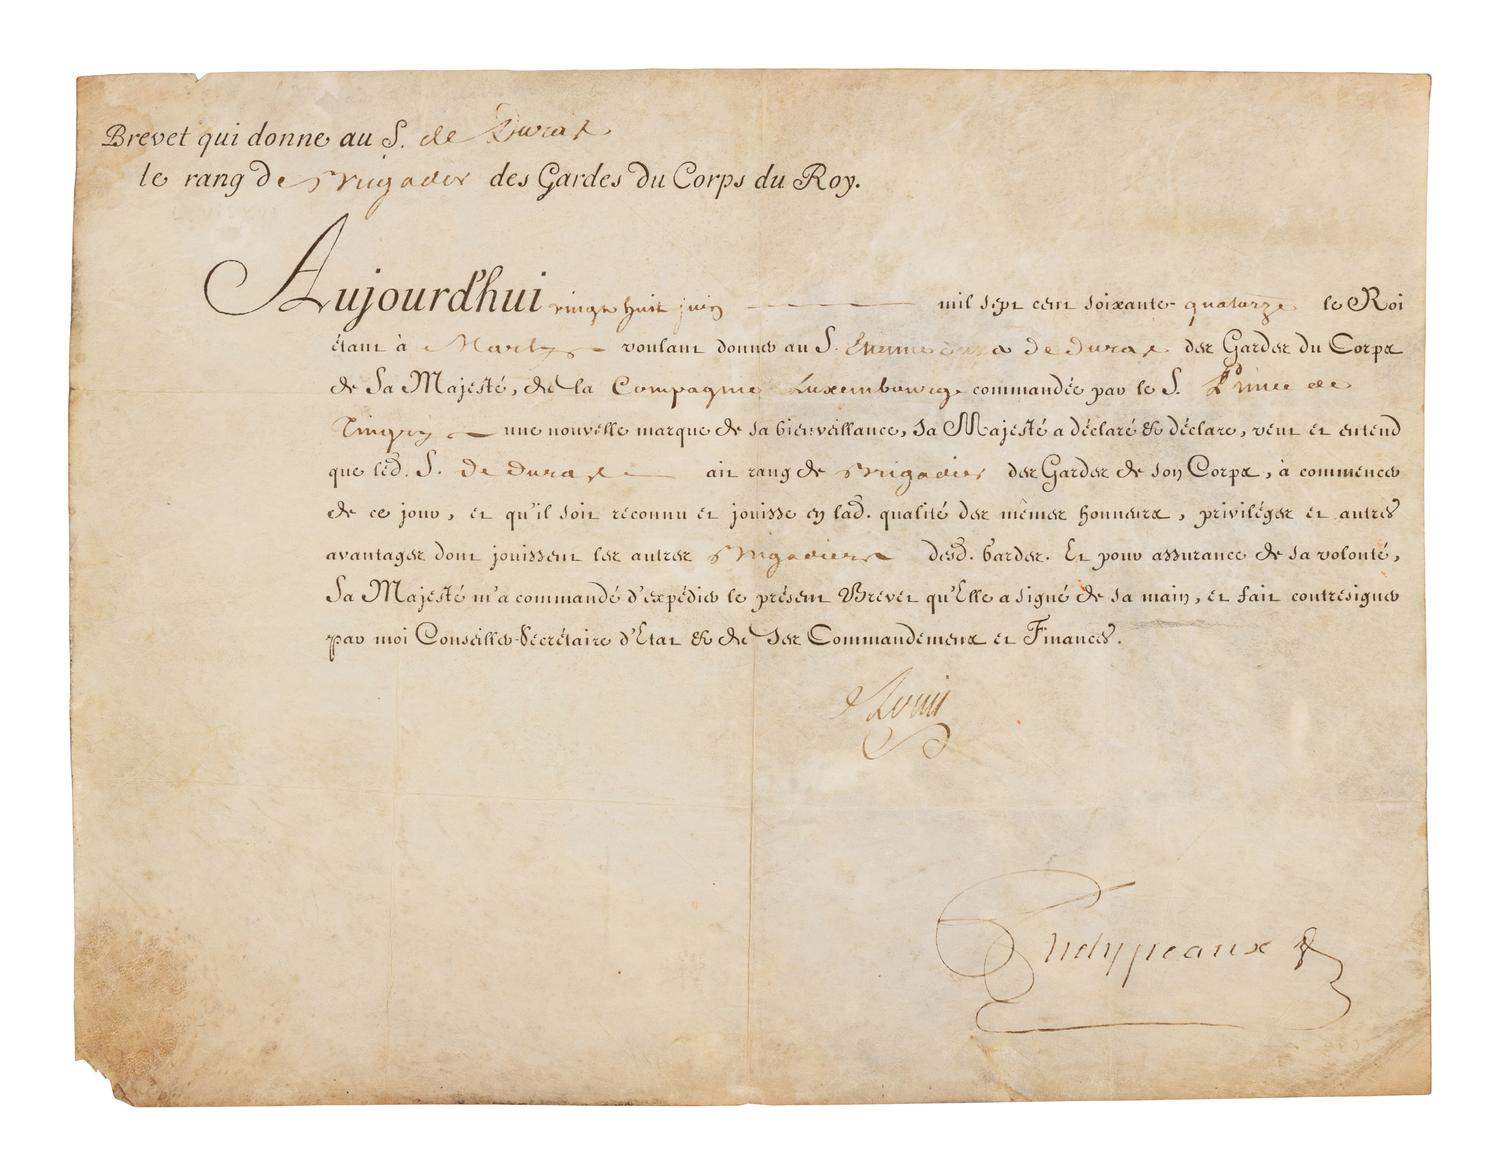 Brevet qui donne au S. de Durat
le rang de Brigadier des Gardes du Corps du Roy.
Aujourd'hui vingt huit juin mil sept cent soixante-quatorze le Roi
étant à Marly voulant donner au S. Etienne de Durat des Gardes du Corps
de Sa Majesté, de la Compagnie Luxembourg commandée par le S. Prince de
Tingry une nouvelle marque de sa bienveillance, Sa Majesté a déclaré & déclare, veut et entend
que led. S. de Durat ait rang de Brigadier des Gardes de son Corps, à commencer
de ce jour, et qu'il soit reconnu et jouisse en lad. qualité des mêmes honneurs, privilèges et autres
avantages dont jouissent les autres Brigadiers desd. Gardes. Et pour assurance de sa volonté,
Sa Majesté m'a commandé d'expédier le présent Brevet qu'Elle a signé de sa main, et fait contresigner
par moi Conseiller-Secrétaire d'Etat & de Ses Commandemens et Finances.
Louis
Phelypeaux